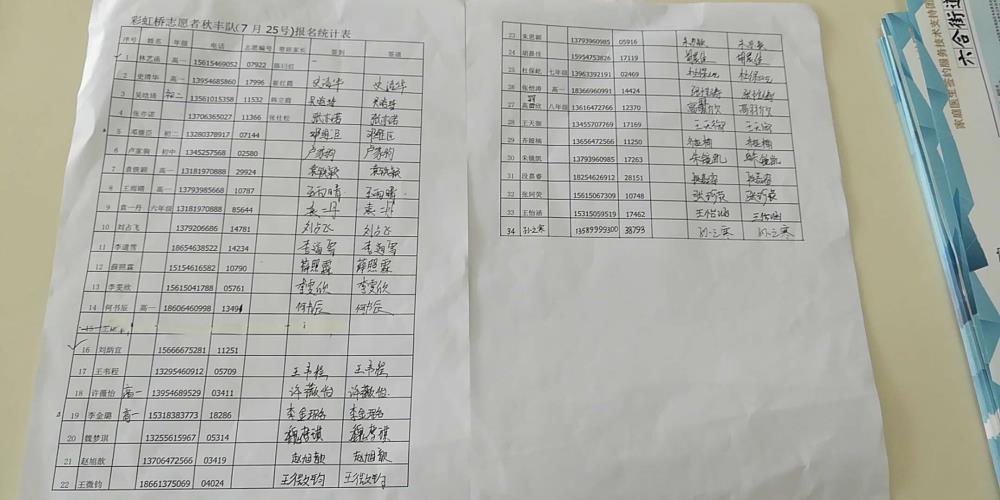 彩虹桥志愿者秋丰队(7月25号)报名统计表
序号 姓名 年级 电话 志愿编号 带班家长 签到 签退
1 林艺涵 高一 15615469052 07922 陈玉红
2 史清华 高一 13954685860 17996 崔红霞 史清华 史清华
3 吴晗琦 初二 13561015358 11532 韩立霞 吴晗琦 吴晗琦
4 张亦诺 13706365027 11366 张仕松 张亦诺 张亦诺
5 邓维臣 初二 13280378917 07144 邓维臣 邓维臣
6 卢家驹 初中 1345257568 02580 卢家驹 卢家驹
7 袁铁颖 高一 13181970888 29924 袁铁颖 袁铁颖
8 王雨晴 高一 13793985668 10787 王雨晴 王雨晴
9 袁一丹 六年级 13181970888 85644 袁一丹 袁一丹
10 刘占飞 1379206686 14781 刘占飞 刘占飞
11 李道雪 18654638522 14234 李道雪 李道雪
12 薛照霖 15154616582 10790 薛照霖 薛照霖
13 李雯欣 15615041788 05761 李雯欣 李雯欣
14 何书辰 高一 18606460998 13494 何书辰 何书辰
15
16 刘炳宜 15666675281 11251
17 王韦程 13295460912 05709 王韦程 王韦程
18 许薇怡 高一 13954689529 03411 许薇怡 许薇怡
19 李金璐 高一 15318383773 18286 李金璐 李金璐
20 魏梦琪 13255615967 05314 魏梦琪 魏梦琪
21 赵旭歆 13706472566 03419 赵旭歆 赵旭歆
22 王微钧 18661375069 04024 王微钧 王微钧
23 朱思颖 13793960985 05916 朱思颖 朱思颖
24 胡晨佳 15954254826 17119 胡晨佳 胡晨佳
25 杜保屹 七年级 13963392191 02469 杜保屹 杜保屹
26 张恺涛 高一 18366960991 14424 张恺涛 张恺涛
27 高蕾欣 八年级 13616472766 12370 高蕾欣 高蕾欣
28 王天翎 13455707769 17169 王天翎 王天翎
29 齐媛楠 13656472566 11250
30 朱镜凯 13793960985 17263 朱镜凯 朱镜凯
31 段慕睿 18254626912 28151 段慕睿 段慕睿
32 张珂荧 15615067309 10748 张珂荧 张珂荧
33 王怡涵 15315059519 17462 王怡涵 王怡涵
34 孙之寒 13589999300 38793 孙之寒 孙之寒
六合街道
家庭医生签约服务技术支持团